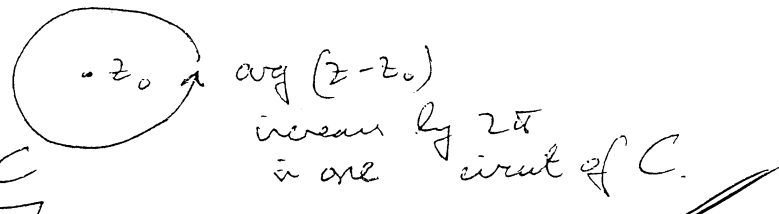 z₀ arg (z-z₀)
increases by 2π
in one circuit of C.
C